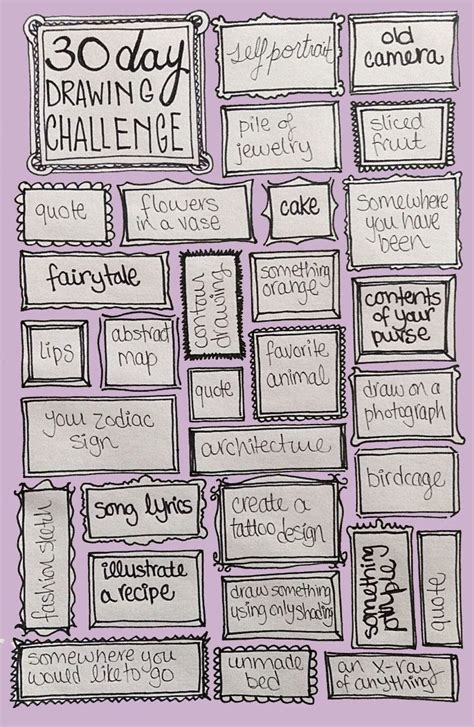 30 day
DRAWING
CHALLENGE
self portrait
old
camera
pile of
jewelry
sliced
fruit
quote
flowers
in a vase
cake
somewhere
you have
been
fairytale
contour
drawing
something
orange
contents
of your
purse
lips
abstract
map
quote
favorite
animal
draw on a
photograph
your zodiac
sign
architecture
birdcage
fashion sketch
song lyrics
create a
tattoo design
illustrate
a recipe
draw something
using only shading
something
purple
quote
somewhere you
would like to go
unmade
bed
an x-ray
of anything